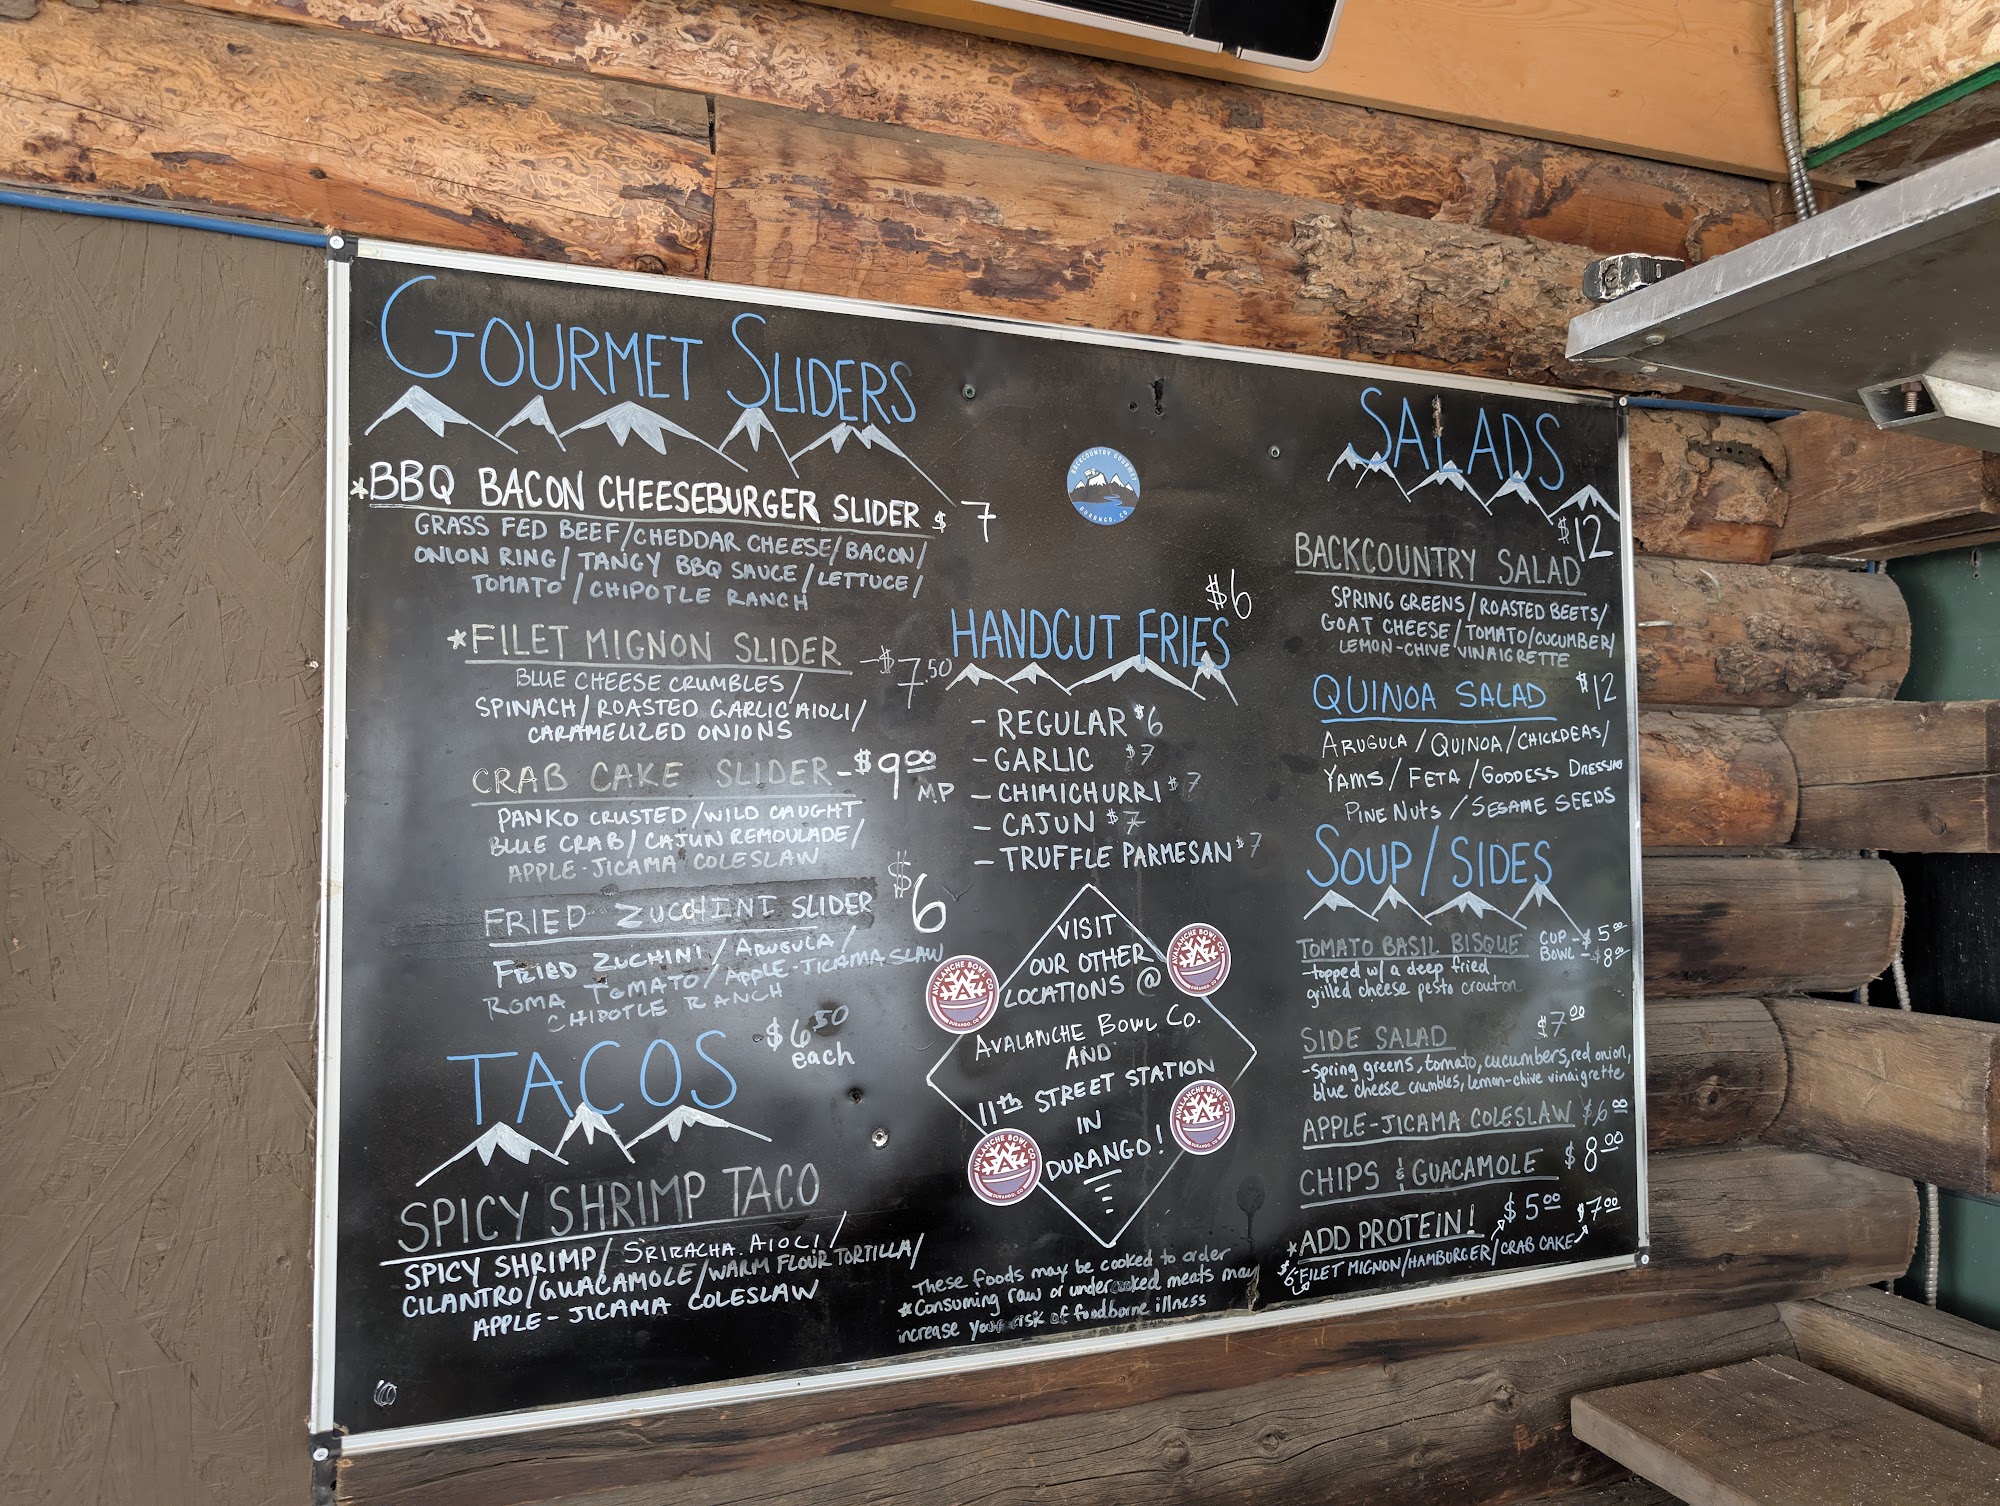 GOURMET SLIDERS
*BBQ BACON CHEESEBURGER SLIDER $7
GRASS FED BEEF/CHEDDAR CHEESE/BACON/
ONION RING/TANGY BBQ SAUCE/LETTUCE/
TOMATO/CHIPOTLE RANCH
*FILET MIGNON SLIDER -$7.50
BLUE CHEESE CRUMBLES/
SPINACH/ROASTED GARLIC AIOLI/
CARAMELIZED ONIONS
CRAB CAKE SLIDER-$9.00
MP
PANKO CRUSTED/WILD CAUGHT
BLUE CRAB/CAJUN REMOULADE/
APPLE-JICAMA COLESLAW
FRIED ZUCCHINI SLIDER $6
FRIED ZUCHINI/ARUGULA/
ROMA TOMATO/APPLE-JICAMA SLAW
CHIPOTLE RANCH
TACOS $6.50
each
SPICY SHRIMP TACO
SPICY SHRIMP/SRIRACHA AIOLI/
CILANTRO/GUACAMOLE/WARM FLOUR TORTILLA/
APPLE-JICAMA COLESLAW
BACKCOUNTRY GOURMET
DURANGO, CO
HANDCUT FRIES $6
- REGULAR $6
- GARLIC $7
- CHIMICHURRI $7
- CAJUN $7
- TRUFFLE PARMESAN $7
VISIT
OUR OTHER
LOCATIONS @
AVALANCHE BOWL CO.
AND
11th STREET STATION
IN
DURANGO!
AVALANCHE BOWL CO
DURANGO, CO
AVALANCHE BOWL CO
DURANGO, CO
AVALANCHE BOWL CO
DURANGO, CO
AVALANCHE BOWL CO
DURANGO, CO
These foods may be cooked to order
*Consuming raw or undercooked meats may
increase your risk of foodborne illness
SALADS
BACKCOUNTRY SALAD $12
SPRING GREENS/ROASTED BEETS/
GOAT CHEESE/TOMATO/CUCUMBER/
LEMON-CHIVE VINAIGRETTE
QUINOA SALAD $12
ARUGULA/QUINOA/CHICKPEAS/
YAMS/FETA/GODDESS DRESSING
PINE NUTS/SESAME SEEDS
SOUP/SIDES
TOMATO BASIL BISQUE CUP-$5.00
BOWL-$8.00
-topped w/ a deep fried
grilled cheese pesto crouton
SIDE SALAD $7.00
-spring greens, tomato, cucumbers, red onion,
blue cheese crumbles, lemon-chive vinaigrette
APPLE-JICAMA COLESLAW $6.00
CHIPS & GUACAMOLE $8.00
*ADD PROTEIN! $5.00 $7.00
$6-FILET MIGNON/HAMBURGER/CRAB CAKE